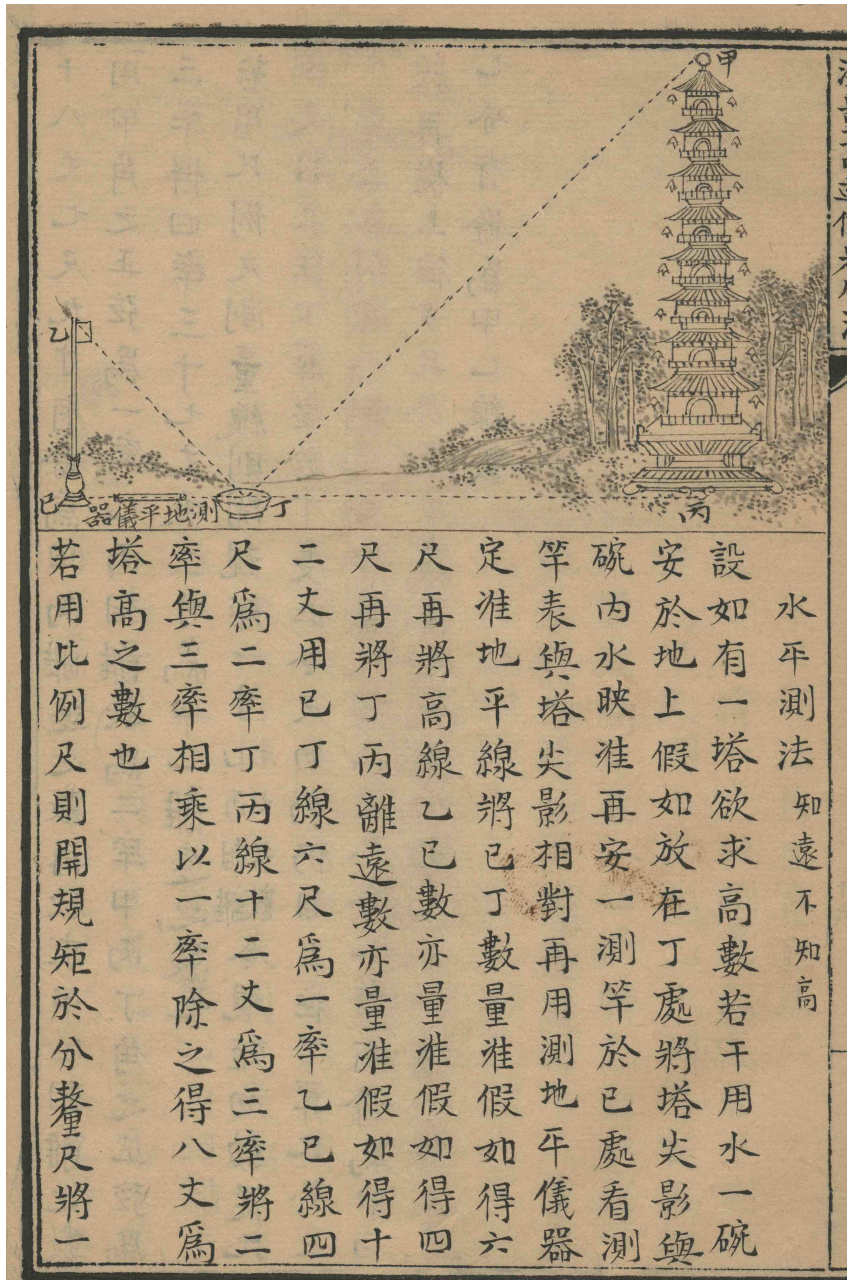 甲
乙
丙
丁
己
測地平儀器
水平測法 知遠不知高
設如有一塔欲求高數若干用水一碗
安於地上假如放在丁處將塔尖影與
碗内水映准再安一測竿於已處看測
竿表與塔尖影相對再用測地平儀器
定准地平線將已丁數量准假如得六
尺再將高線乙已數亦量准假如得四
尺再將丁丙離遠數亦量准假如得十
二丈用已丁線六尺爲一率乙已線四
尺爲二率丁丙線十二丈爲三率將二
率與三率相乘以一率除之得八丈爲
塔高之數也
若用比例尺則開規矩於分釐尺將一